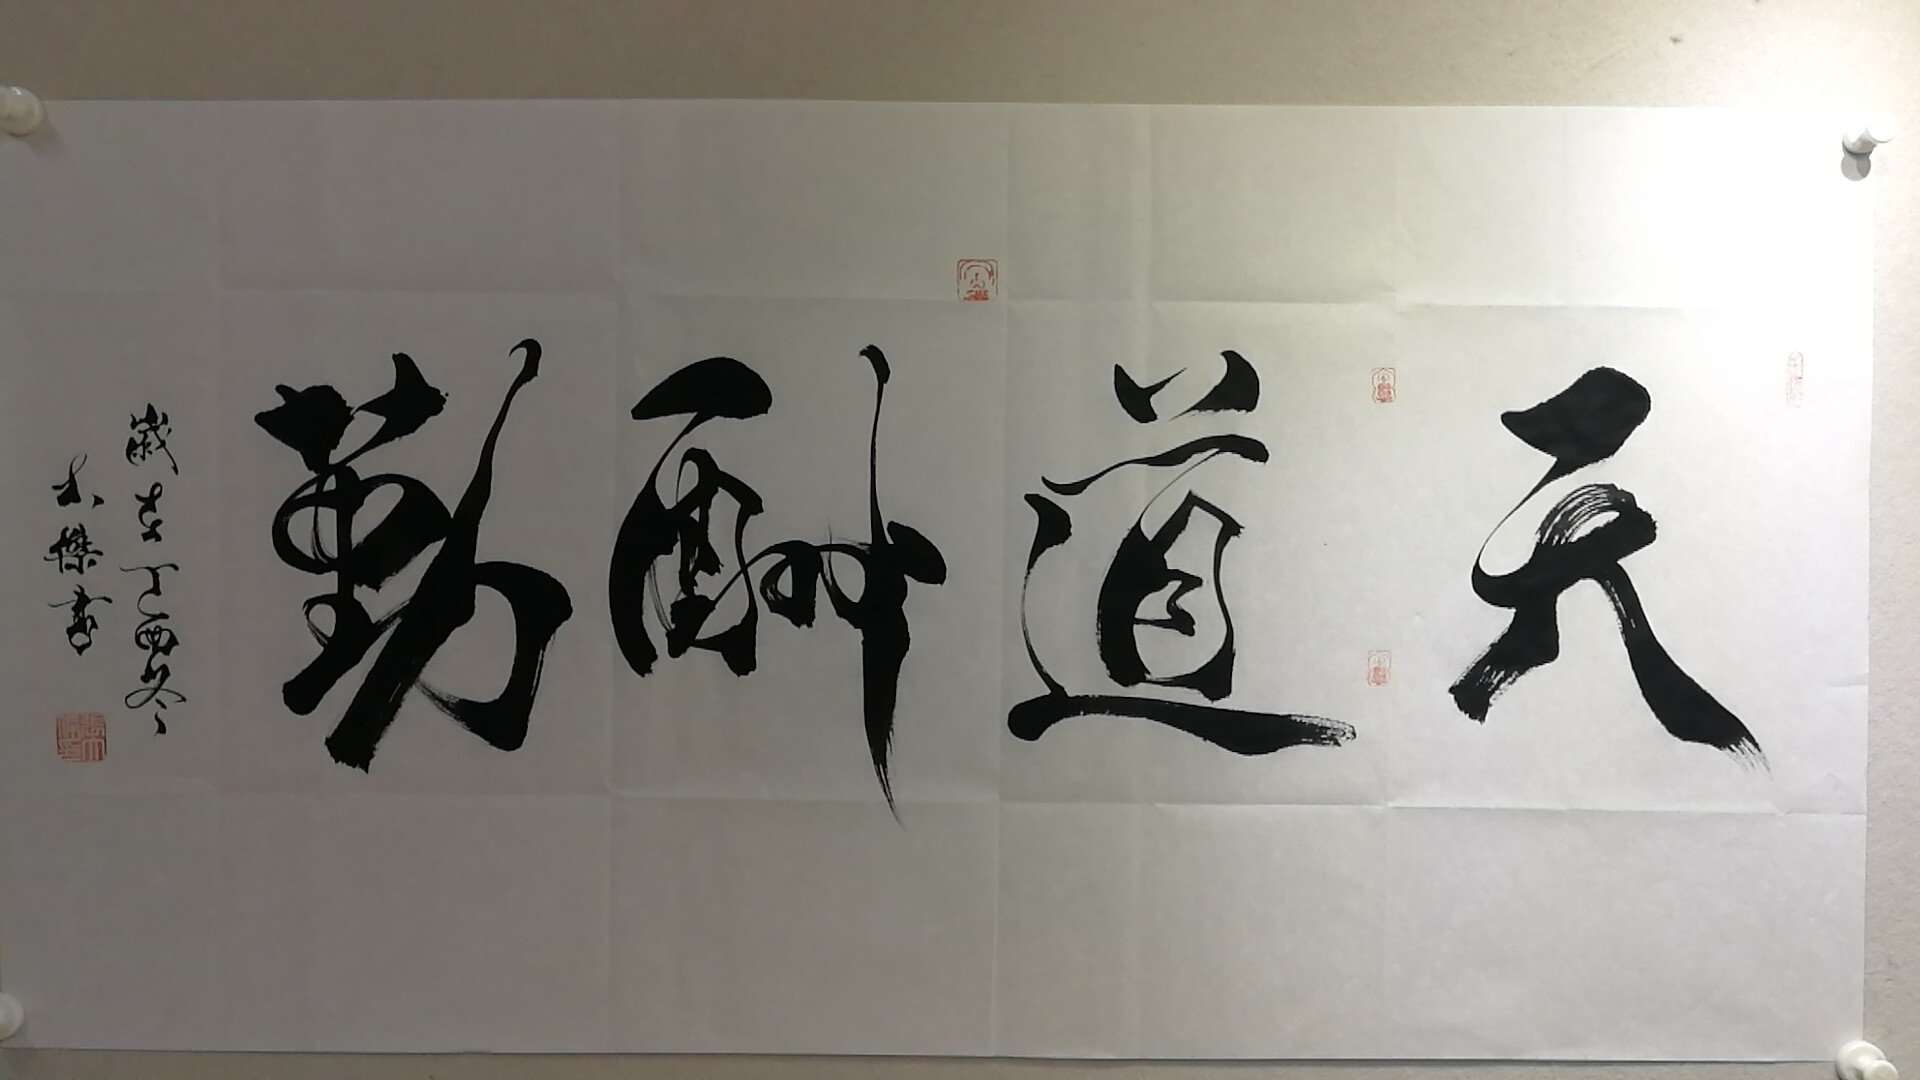 天道酬勤
歲在丁酉冬
傑書